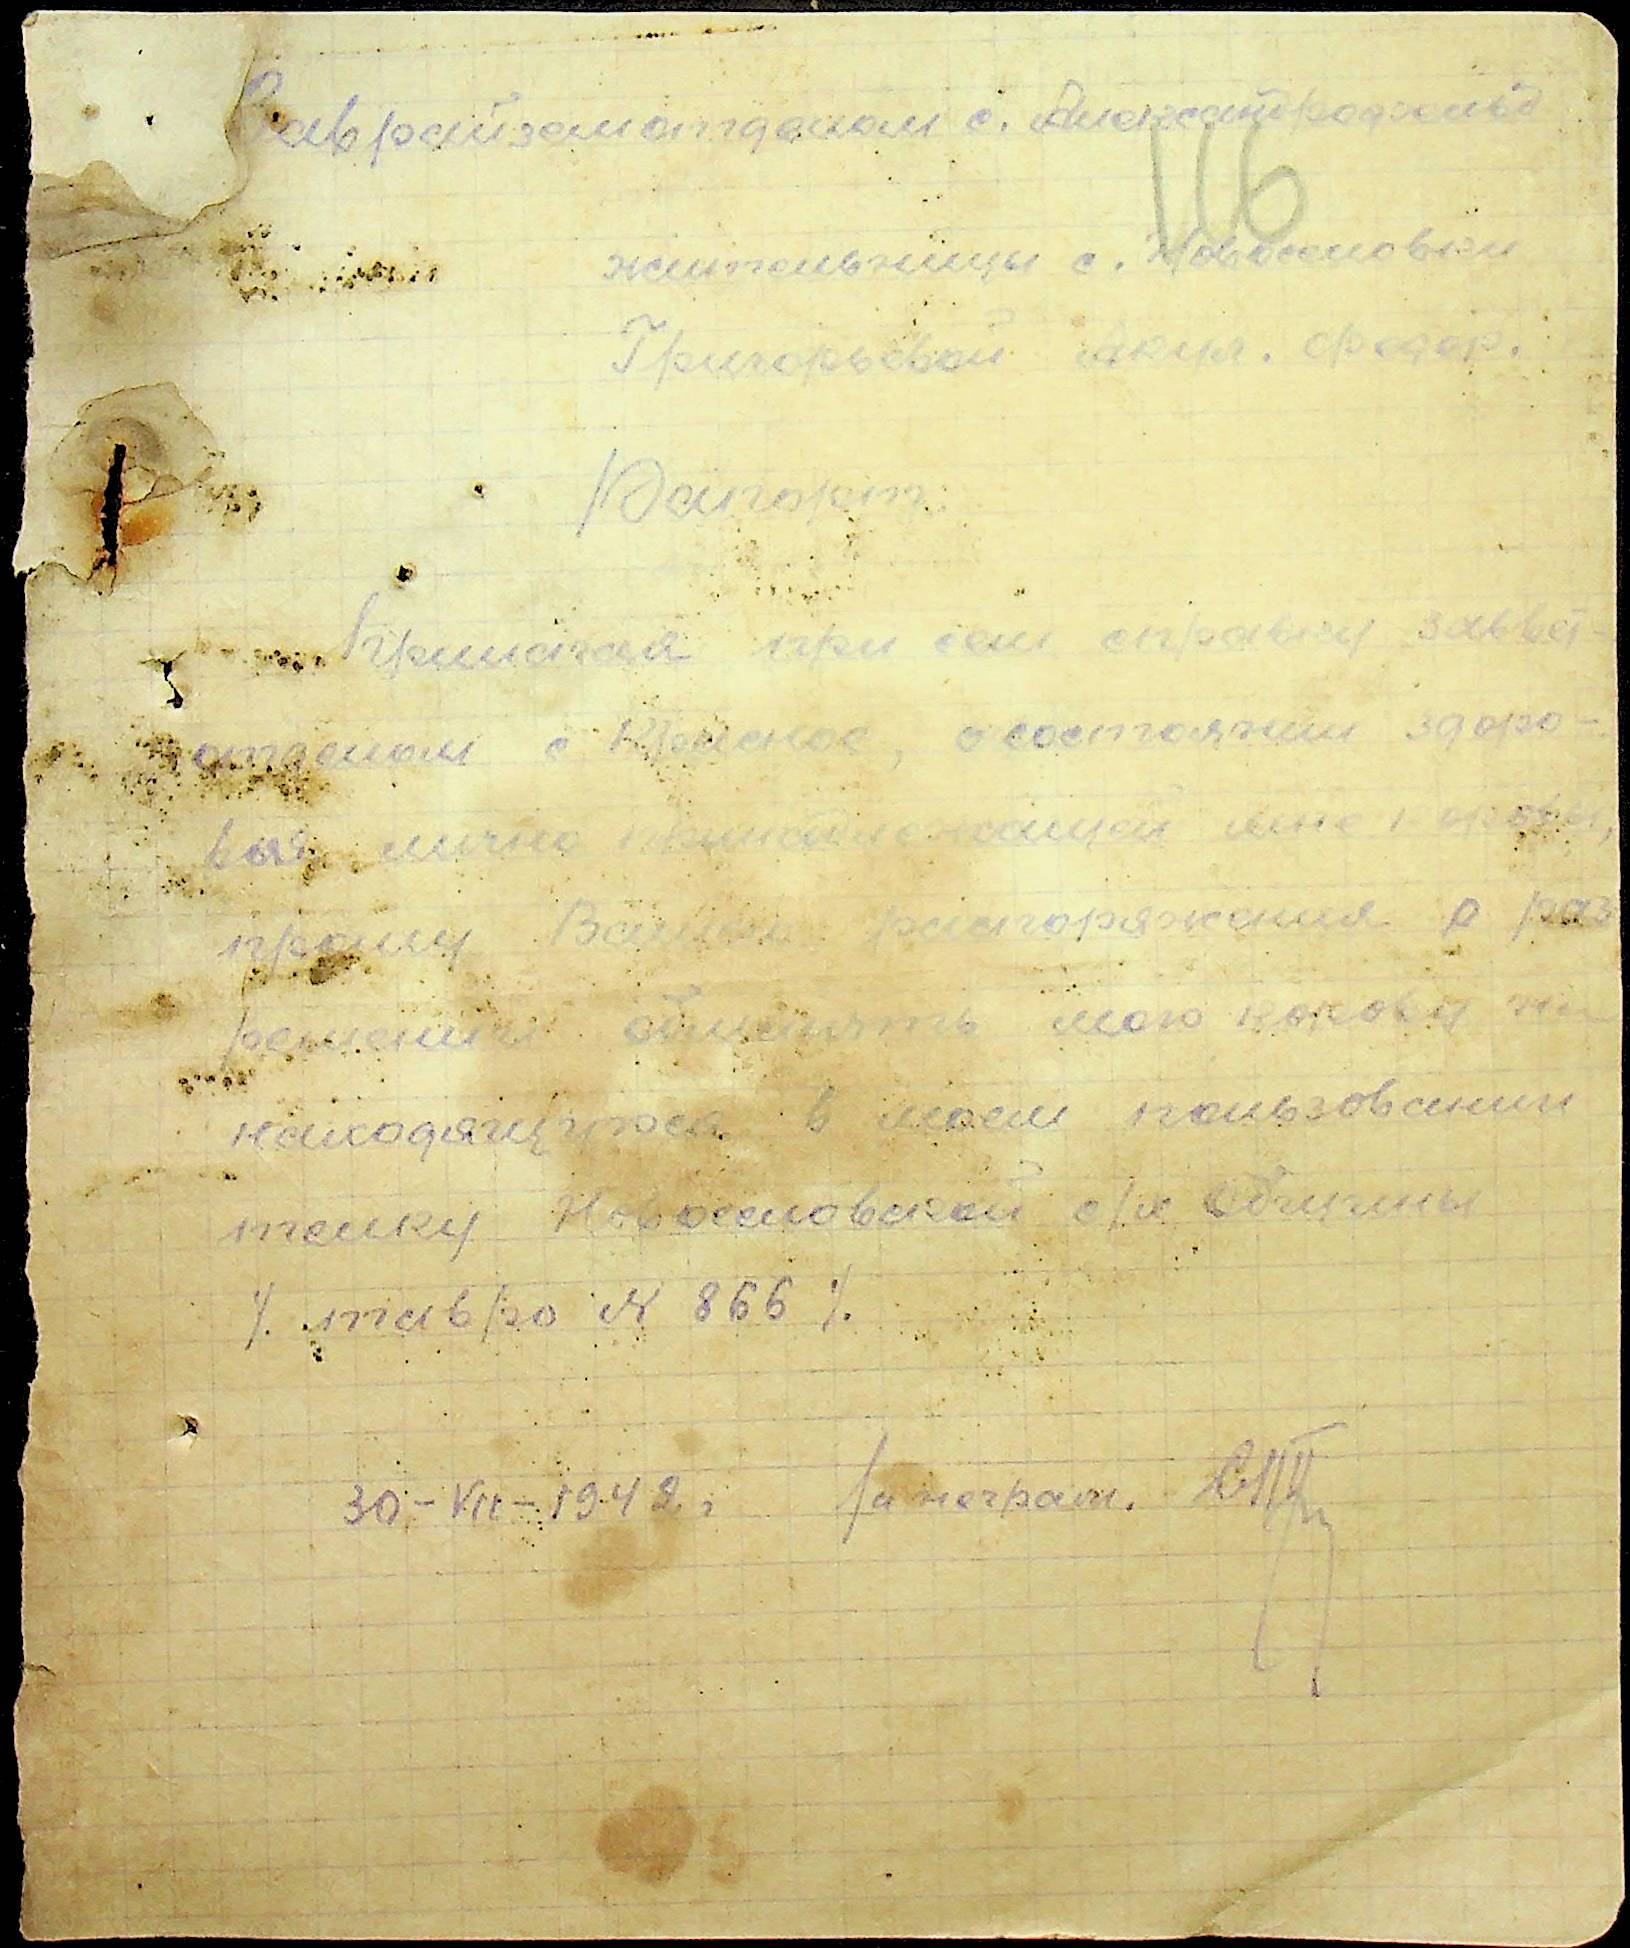 Заврайземотделом с. Александрфельд
116
жительницы с. Новоселовки
Григорьевой Акул. Федор.
Рапорт.
Прилагая при сем справку заввет-
отделом с Красное, о состоянии здоро-
вья лично принадлежащей мне коровы,
прошу Вашего распоряжения о раз
решении обменять мою корову на
находящуюся в моем пользовании
телку Новоселовской с/х Общины
/. тавро N 866 /.
30-VII-1942 г неграм.